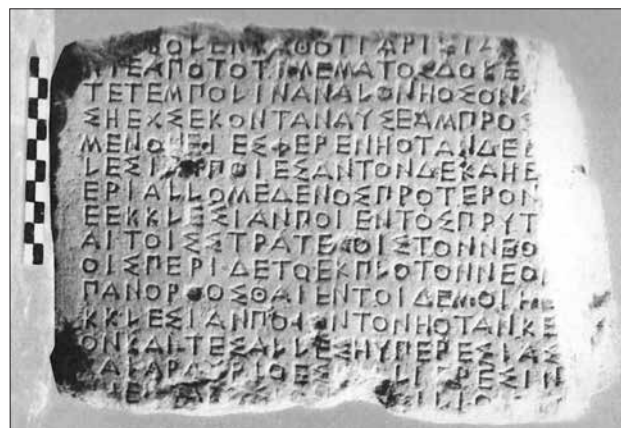 ΒΟΛΕΝΚΑΘΟΤΙΑΡΙΣΤΑ
ΙΤΕΑΠΟΤΟΤΙΜΕΜΑΤΟΣΔΟΚΕ
ΤΕΤΕΜΠΟΛΙΝΑΝΑΛΟΝΗΟΣΟΝΑ
ΣΗΕΧΣΕΚΟΝΤΑΝΑΥΣΕΑΜΠΡΟΣ
ΜΕΝΟΙΕΙΕΣΦΕΡΕΝΗΟΤΑΝΔΕΕ
ΛΕΣΙΑΝΠΟΙΕΣΑΝΤΟΝΔΕΚΑΗΕ
ΕΡΙΑΛΛΟΜΕΔΕΝΟΣΠΡΟΤΕΡΟΝ
ΕΕΚΚΛΕΣΙΑΝΠΟΙΕΝΤΟΣΠΡΥΤ
ΑΙΤΟΙΣΣΤΡΑΤΕΓΟΙΣΤΟΝΝΕΟ
ΟΙΣΠΕΡΙΔΕΤΟΕΚΠΛΟΤΟΝΝΕΟ
ΠΑΝΟΡΘΟΣΘΑΙΕΝΤΟΙΔΕΜΟΙΗ
ΚΚΛΕΣΙΑΝΠΟΙΟΝΤΟΝΗΟΤΑΝΚΕ
ΟΝΚΑΙΤΕΣΑΛΛΕΣΗΥΠΕΡΕΣΙΑΣ
ΚΑΙΑΡΓΥΡΙΟΕΣΚΑΛΛΙΕΡΕΣΙΝ